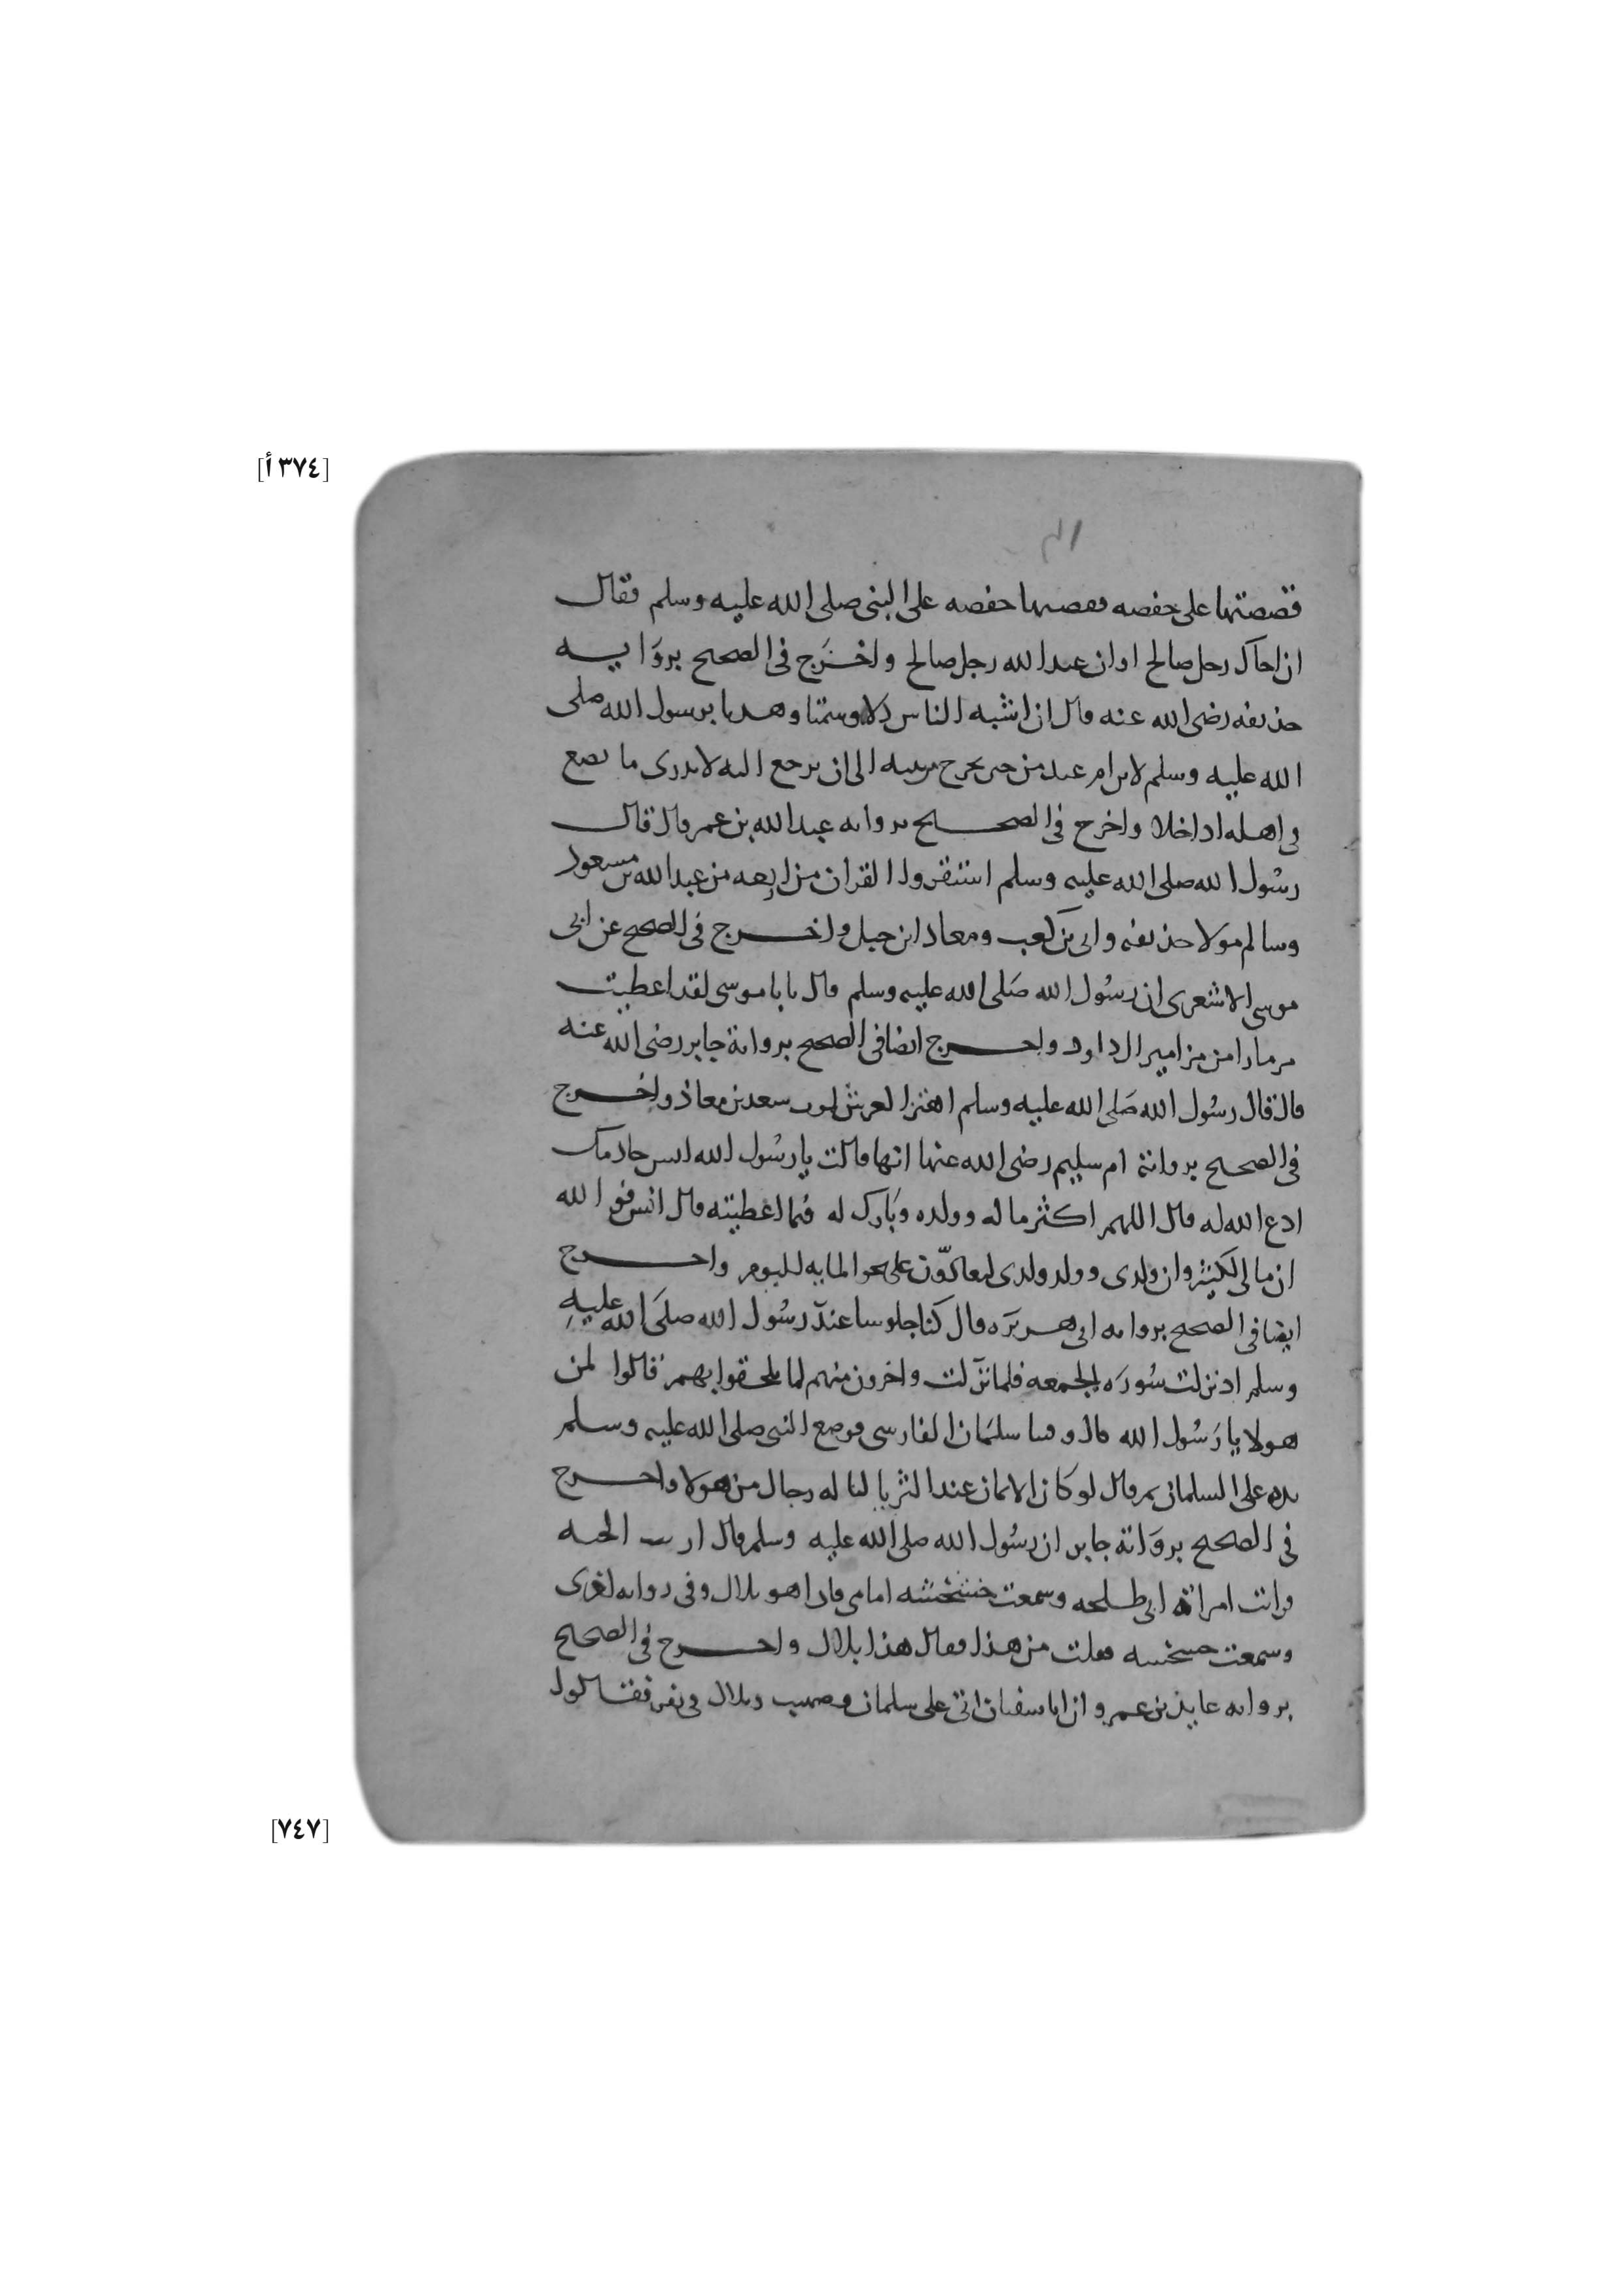 [٣٧٤ أ]
قصصتها على حفصه فقصتها حفصه على النبي صلى الله عليه وسلم فقال
ان اخاك رجل صالح او ان عبد الله رجل صالح واخرج في الصحيح بروايه
حذيفه رضي الله عنه قال ان اشبه الناس دلا وسمتا وهديا برسول الله صلى
الله عليه وسلم لابن ام عبد من حين يخرج من بيته الى ان يرجع اليه لا يدري ما يصنع
في اهله اذا خلا واخرج في الصحيح بروايه عبد الله بن عمر قال قال
رسول الله صلى الله عليه وسلم استقروا القران من اربعه من عبد الله بن مسعود
وسالم مولا حذيفه وابي بن كعب ومعاذ ابن جبل واخرج في الصحيح عن ابي
موسى الاشعري ان رسول الله صلى الله عليه وسلم قال يابا موسى لقد اعطيت
مزمارا من مزامير ال داود واخرج ايضا في الصحيح برواية جابر رضي الله عنه
قال قال رسول الله صلى الله عليه وسلم اهتز العرش لموت سعد بن معاذ واخرج
في الصحيح برواية ام سليم رضي الله عنها انها قالت يا رسول الله انس خادمك
ادع الله له قال اللهم اكثر ماله وولده وبارك له فيما اعطيته قال انس فو الله
ان مالي لكثير وان ولدي وولد ولدي ليتعادّون على نحو المايه لليوم واخرج
ايضا في الصحيح بروايه ابي هريره قال كنا جلوسا عند رسول الله صلى الله عليه
وسلم اذ نزلت سوره الجمعه فلما نزلت واخرون منهم لما يلحقوا بهم قالوا لمن
هولا يا رسول الله قال وفينا سلمان الفارسي فوضع النبي صلى الله عليه وسلم
يده على السلمان ثم قال لو كان الايمان عند الثريا لناله رجال من هولا واخرج
في الصحيح برواية جابر ان رسول الله صلى الله عليه وسلم قال اريت الجنه
فرايت امراة ابي طلحه وسمعت خشخشه امامي فاذا هو بلال وفي روايه اخرى
وسمعت خشخشه فقلت من هذا فقال هذا بلال واخرج في الصحيح
بروايه عايذ بن عمرو ان ابا سفيان اتى على سلمان وصهيب وبلال في نفر فقالوا
[٧٤٧]